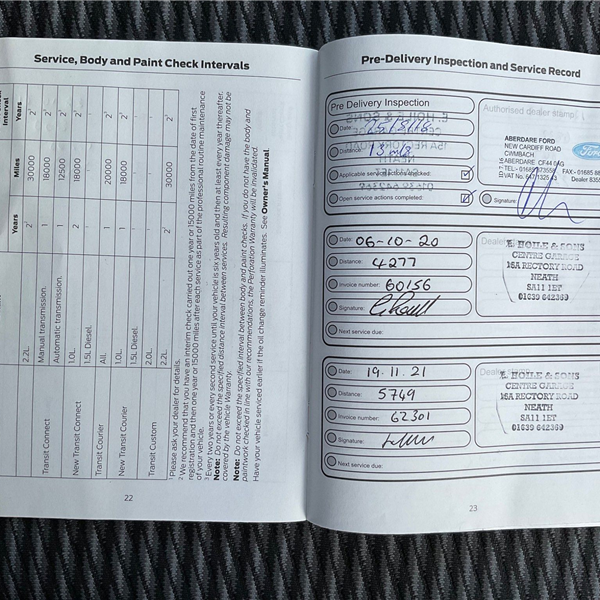 Service, Body and Paint Check Intervals
Interval
Years Miles Years
2.2L. 2² 30000 2¹
Transit Connect Manual transmission. 1 18000 2¹
Automatic transmission. 1 12500 2¹
New Transit Connect 1.0L. 2 18000 2¹
1.5L Diesel.
Transit Courier All. 1 20000 2¹
New Transit Courier 1.0L. 1 18000 2¹
1.5L Diesel.
Transit Custom 2.0L. 2² 30000 2¹
2.2L.
¹ Please ask your dealer for details.
² We recommend that you have an interim check carried out one year or 15000 miles from the date of first
registration and then one year or 15000 miles after each service as part of the professional routine maintenance
of your vehicle.
³ Every two years or every second service until your vehicle is six years old and then at least every year thereafter.
Note: Do not exceed the specified distance interval between services. Resulting component damage may not be
covered by the vehicle Warranty.
Note: Do not exceed the specified interval between body and paint checks. If you do not have the body and
paintwork checked in line with our recommendations, the Perforation Warranty will be invalidated.
Have your vehicle serviced earlier if the oil change reminder illuminates. See Owner's Manual.
22
Pre-Delivery Inspection and Service Record
Pre Delivery Inspection
Date:
Distance:
Applicable services checked:
Open service actions completed:
Authorised dealer stamp
ABERDARE FORD
NEW CARDIFF ROAD
CWMBACH
ABERDARE
Ford
Signature:
Date: 06-10-20
Distance: 4277
Invoice number: 60156
Signature:
Next service due:
E. HOILE & SONS
CENTRE GARAGE
16A RECTORY ROAD
NEATH
SA11 1ET
01639 642369
Date: 19.11.21
Distance: 5749
Invoice number: 62301
Signature:
Next service due:
E. HOILE & SONS
CENTRE GARAGE
16A RECTORY ROAD
NEATH
SA11 1ET
01639 642369
23